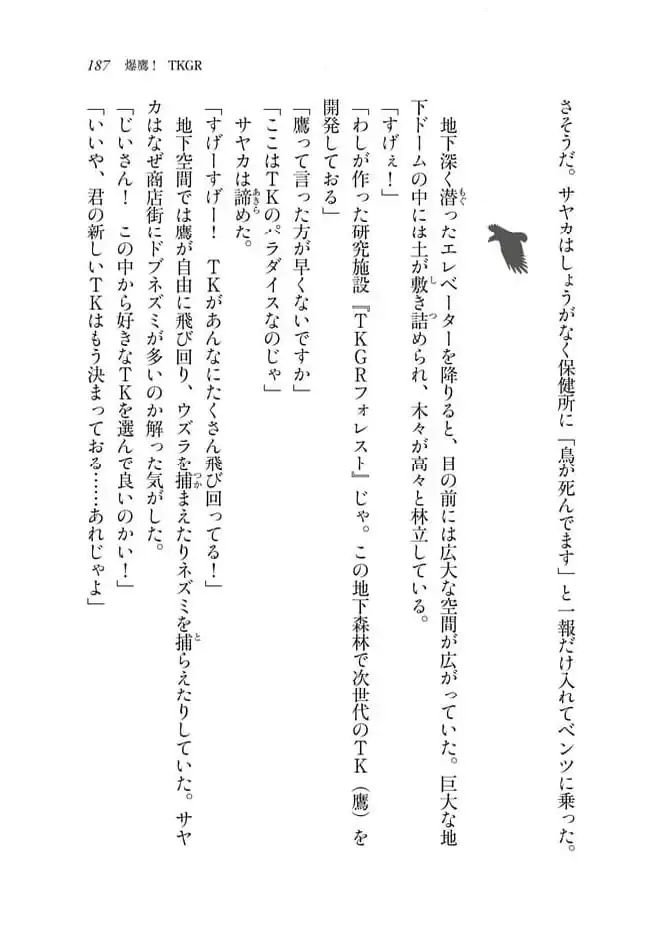 187 爆鷹！ TKGR
さそうだ。サヤカはしょうがなく保健所に「鳥が死んでます」と一報だけ入れてベンツに乗った。
地下深く潜ったエレベーターを降りると、目の前には広大な空間が広がっていた。巨大な地
下ドームの中には土が敷き詰められ、木々が高々と林立している。
「すげぇ！」
「わしが作った研究施設『TKGRフォレスト』じゃ。この地下森林で次世代のTK（鷹）を
開発しておる」
「鷹って言った方が早くないですか」
「ここはTKのパラダイスなのじゃ」
サヤカは諦めた。
「すげーすげー！ TKがあんなにたくさん飛び回ってる！」
地下空間では鷹が自由に飛び回り、ウズラを捕まえたりネズミを捕らえたりしていた。サヤ
カはなぜ商店街にドブネズミが多いのか解った気がした。
「じいさん！ この中から好きなTKを選んで良いのかい！」
「いいや、君の新しいTKはもう決まっておる……あれじゃよ」